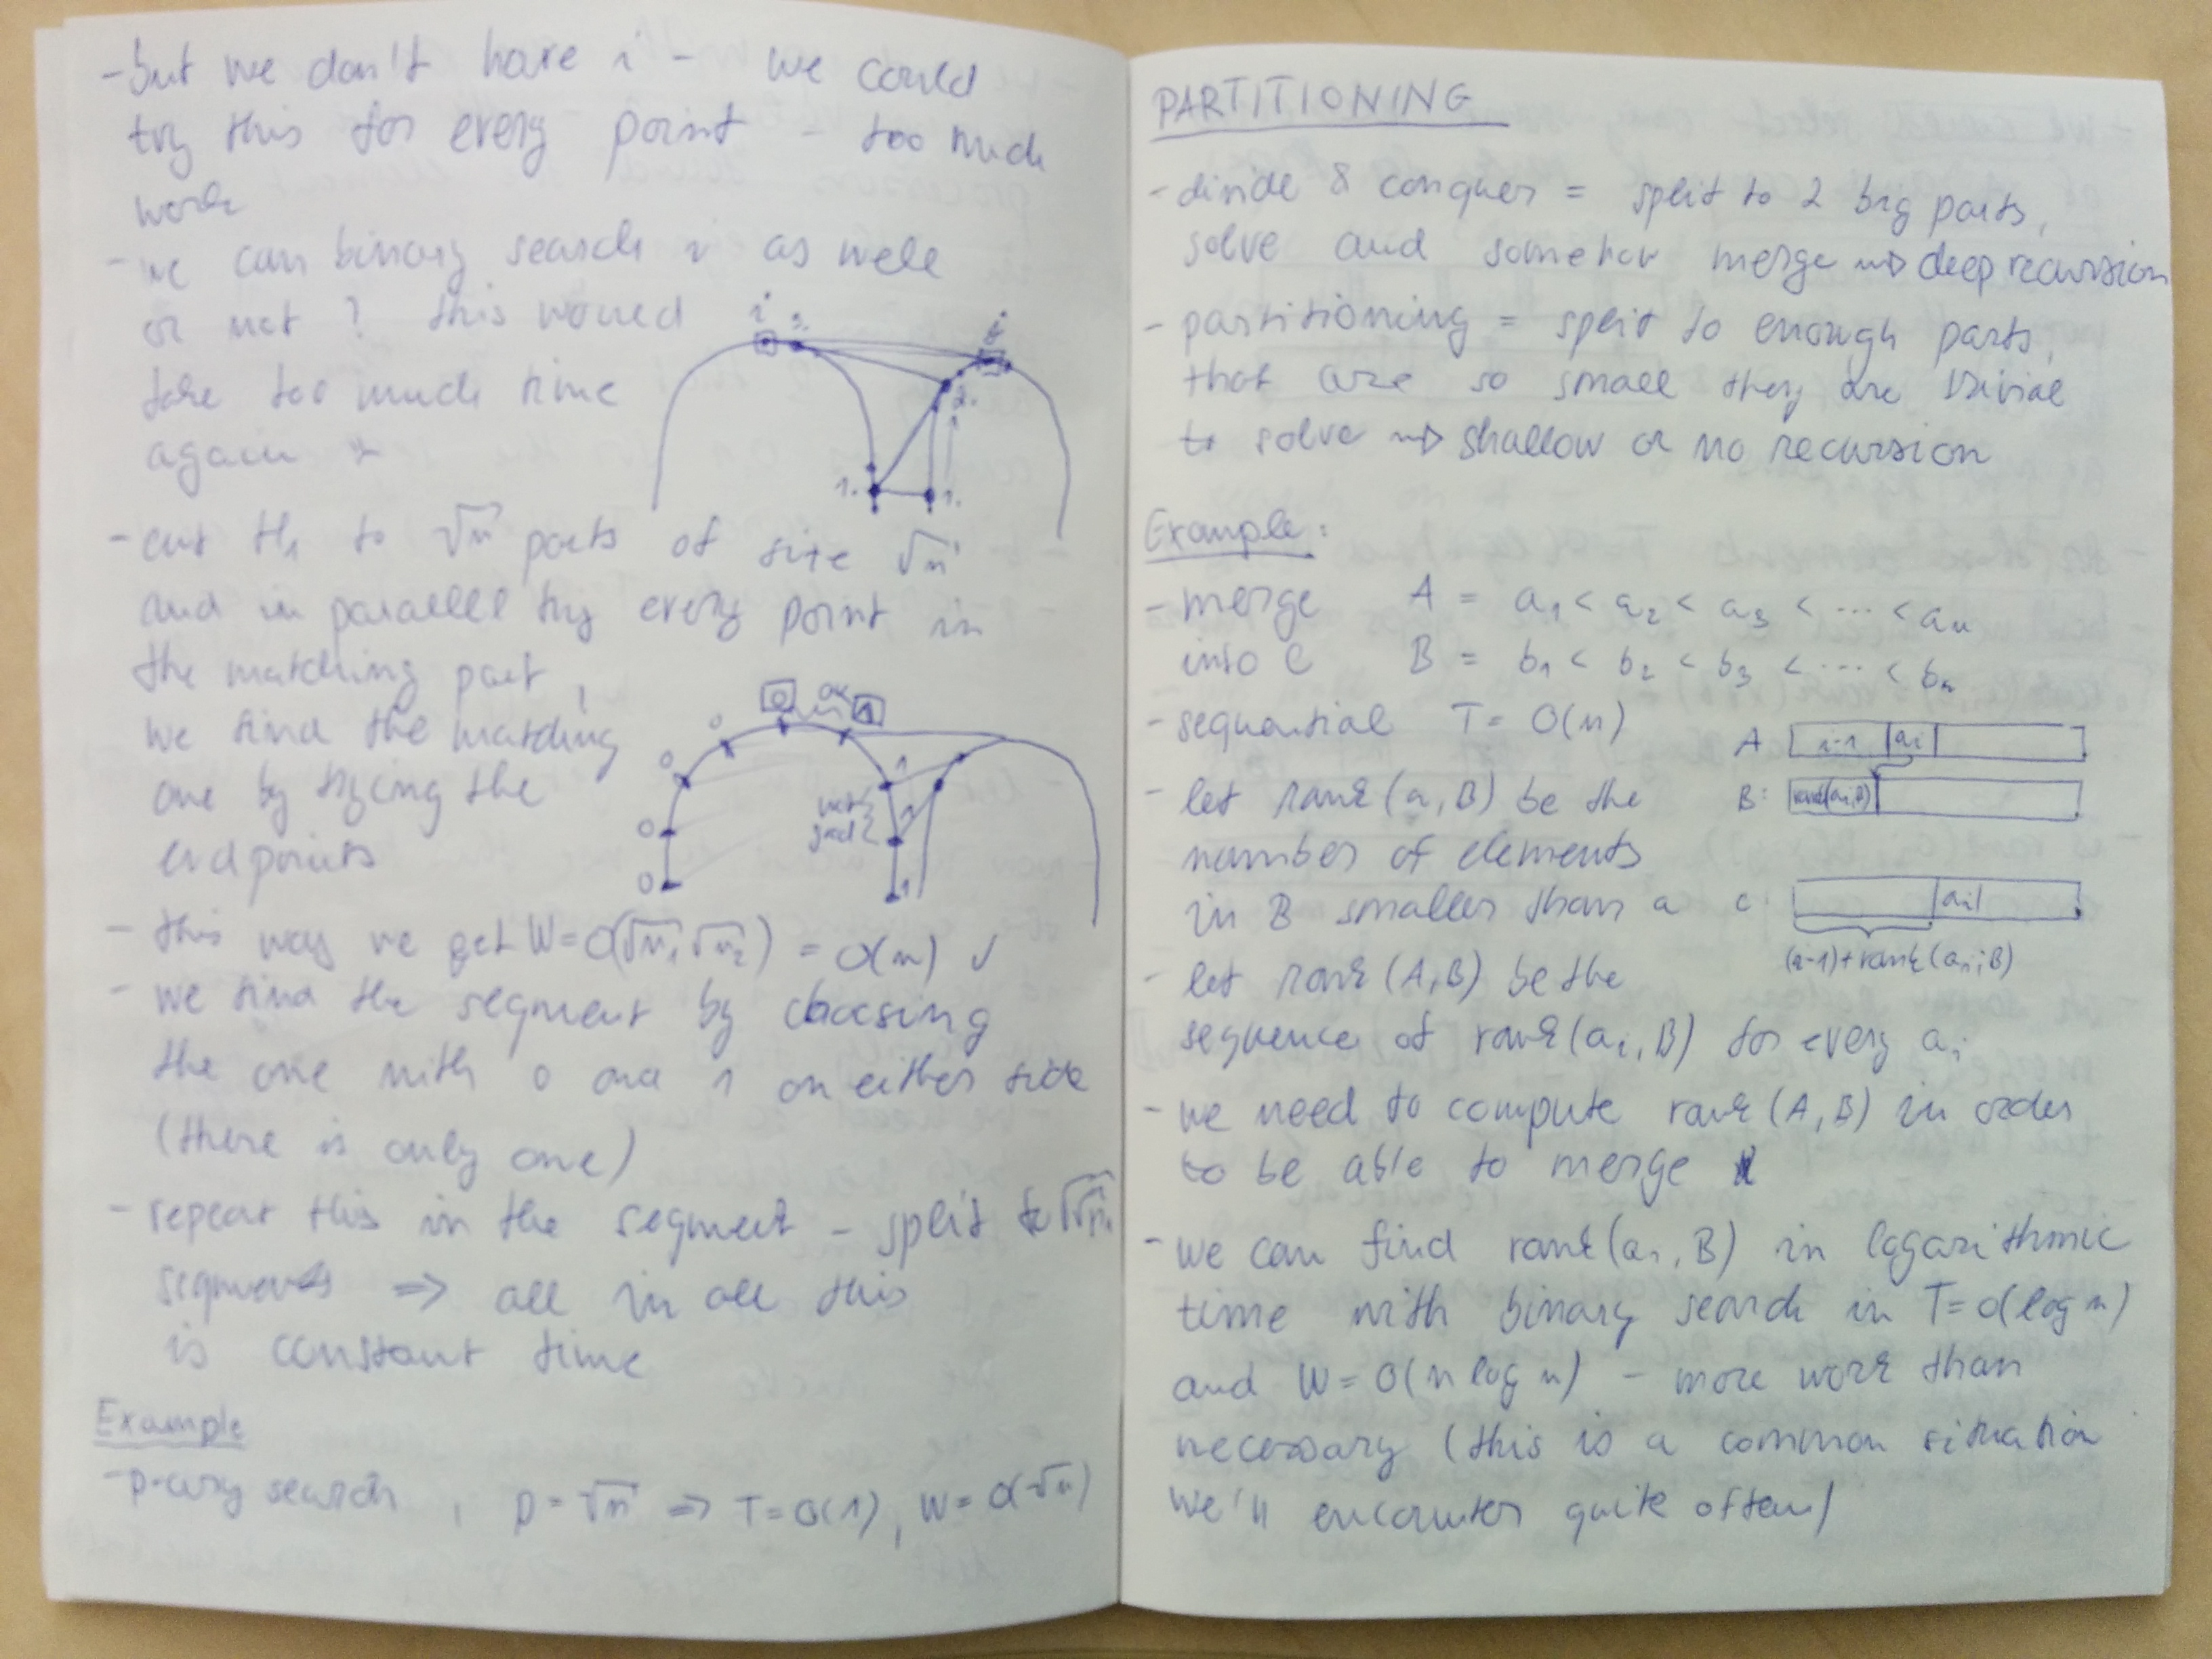 - but we don't have i - we could
try this for every point - too much
work
- we can binary search i as well
or not? this would
take too much time
again
i 3. j
2.
1. 1.
- cut H₁ to √n parts of size √n
and in parallel try every point in
the matching part,
we find the matching
one by trying the
endpoints
0 0 0 0 0 ok 1 1 1
not
good
- this way we get W=O(√n₁ √n₂) = O(n) ✓
- we find the segment by choosing
the one with 0 and 1 on either side
(there is only one)
- repeat this in the segment - split to √√n₁
segments ⇒ all in all this
is constant time
Example
- p-ary search, p=√n ⇒ T=O(1), W=O(√n)
PARTITIONING
- divide & conquer = split to 2 big parts,
solve and somehow merge ⇝ deep recursion
- partitioning = split to enough parts,
that are so small they are trivial
to solve ⇝ shallow or no recursion
Example:
- merge A = a₁ < a₂ < a₃ < ... < aₙ
into C B = b₁ < b₂ < b₃ < ... < bₙ
- sequential T = O(n)
A i-1 aᵢ
- let rank(a,B) be the
B: rank(aᵢ,B)
number of elements
in B smaller than a
C aᵢ
(i-1)+rank(aᵢ;B)
- let rank(A,B) be the
sequence of rank(aᵢ,B) for every aᵢ
- we need to compute rank(A,B) in order
to be able to merge
- we can find rank(aᵢ,B) in logarithmic
time with binary search in T=O(log n)
and W=O(n log n) - more work than
necessary (this is a common situation
we'll encounter quite often)